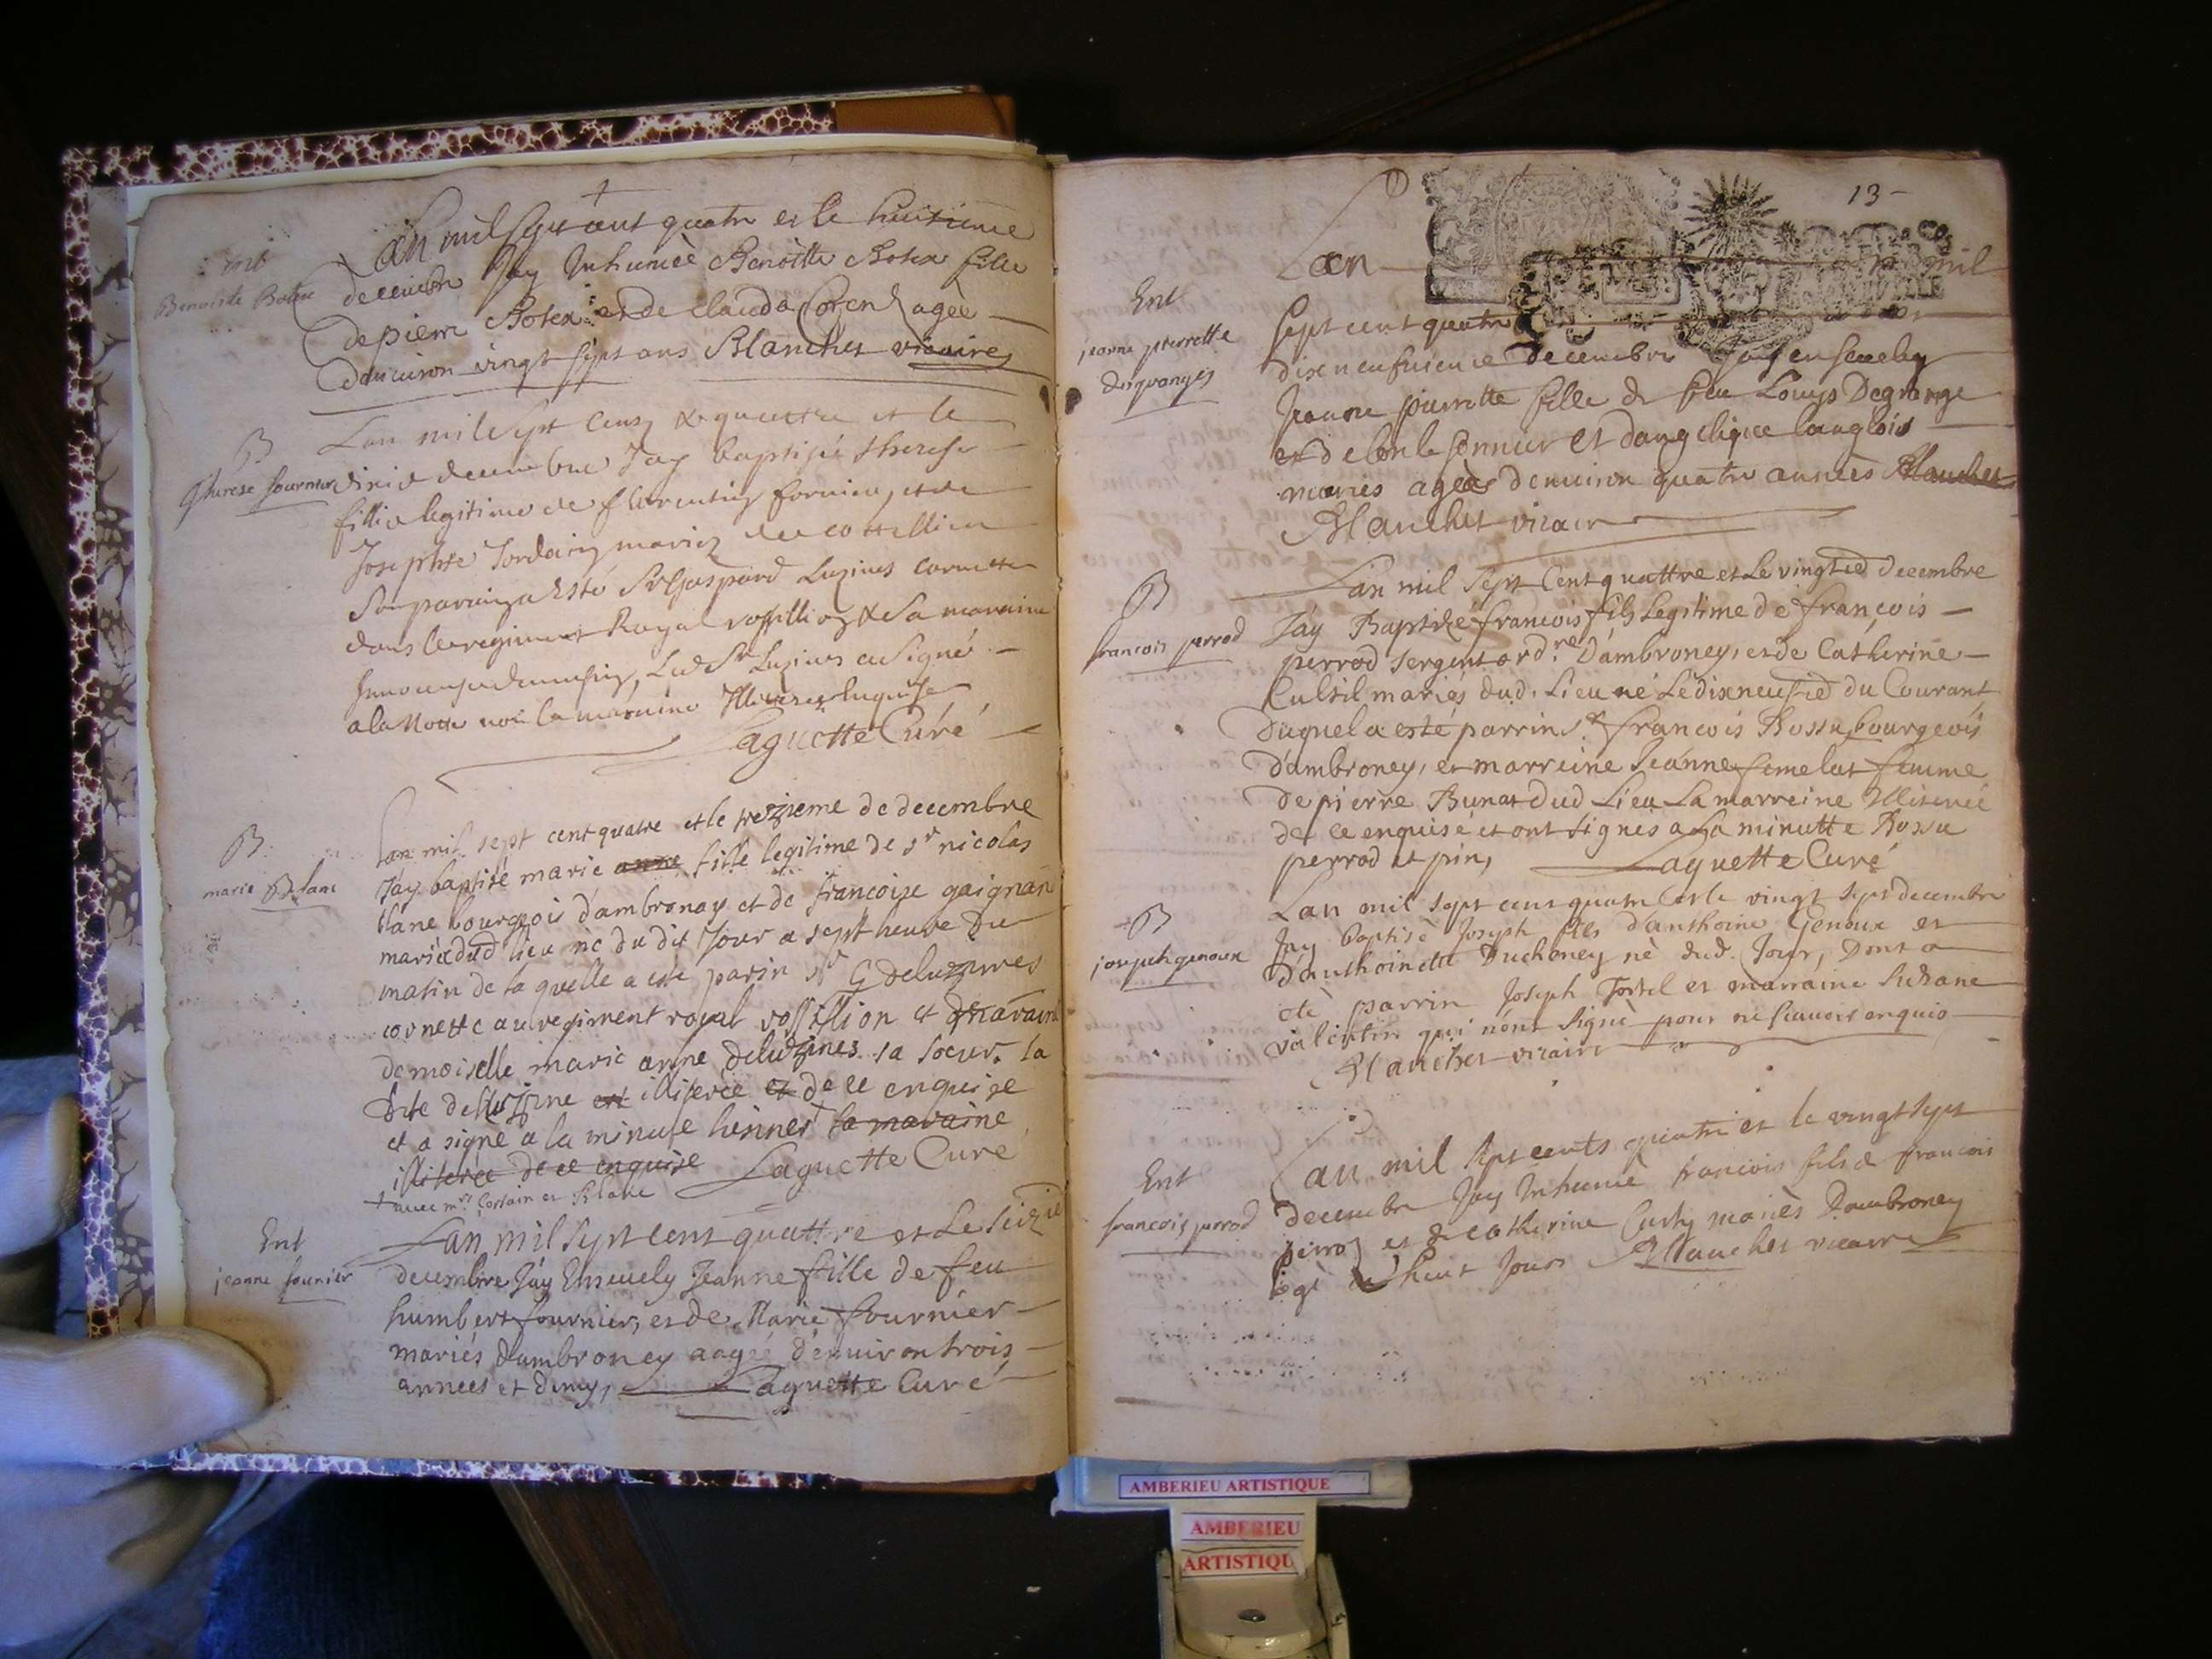 ent
Benoiste Botex
Lan mil sept cent quatre et le huitieme
decembre Jay Inhumèe Benoitte Botex fille
de pierre Botex et de claudà agèe
denviron vingt sept ans Blanchet vicaire
B
Therese fournier
Lan mil sept cens & quattre et le
decembre Jay baptisée therese
fillie legitime de florentin fornier, et de
Josephte Jordain mariez
Son parain a Esté Sr Gaspard Luzines Cornette
dans le regiment Royal rossillion & Sa maraine
Lud Sr Luzines a Signé
a la Notte non la maraine Illiteree Enquise
Laguette Curé
B
marie Blanc
Lan mil sept cent quatre et le trezieme de decembre
Jáy baptisé marie anne fille legitime de sr nicolas
blanc bourgeois d'ambronay et de francoise gaignan
mariés dud lieu né du dit Jour a sept heure du
matin de la quelle a esté parin sr G deluzines
cornette au regiment royal rossillion et maraine
demoiselle marie anne deluzines sa soeur. la
dite deluzine est illiterée et de ce enquise
et a signé a la minute la maraine
illiterée de ce enquise Laguette Curé
+ avec mrs Corsain et Blanc
Ent
jeanne fournier
Lan mil Sept Cent quattre et Le Seizie
decembre Jáy Ensevely Jeanne fille de feu
humbert fournier, et de Marie fournier
mariés d'ambroney aagé d'environ trois
années et demy, Laguette Curé
13-
Ent
jeanne pierrette
degranges
Lan mil
Sept cent quatre
dixneufvieme decembre Jay ensevely
Jeanne pierrette fille de feu Louys Degrange
et dangelique langlois
mariés agèe denviron quatre annèes Blanchet
Blanchet vicair
B
francois perrod
Lan mil Sept Cent quattre et Le vingtied decembre
Jáy Baptizé francois fils Legitime de francois
perrod Sergent ordre. D'ambroney, et de Catherine
Cultil mariés dud. Lieu né Le dixneufied du Courant
Duquel a esté parrin Sr francois Bossu bourgeois
d'ambroney, et marreine Jeánne femelat femme
de pierre Bunat dud Lieu La marreine Illiterée
de ce enquisé et ont Signés a La minutte Bossu
perrod et pin, Laguette Curé
B
joseph genoux
Lan mil sept cens quatre et le vingt Sept decembre
Jay baptisè Joseph fils d'anthoine Genoux et
d'anthoinette Duchoney nè dud. Jour, Dont a
étè parrin Joseph Tortel et marraine Suzane
valentin qui nont Signè pour ne scavoir enquis
Blanchet vicaire
Ent
francois perrod
Lan mil Sept cents quatre et le vingt Sept
decembre Jay Inhumè francois fils de francois
perrod et de catherine mariès Dambroney
agè de huit Jours Blanchet vicaire
AMBERIEU ARTISTIQUE
AMBERIEU
ARTISTIQU